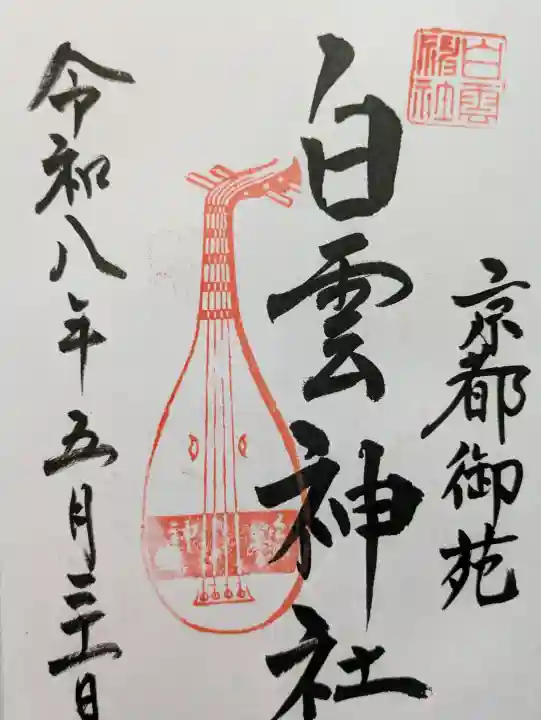 白雲
神社
京都御苑
白雲神社
令和八年五月三十一日